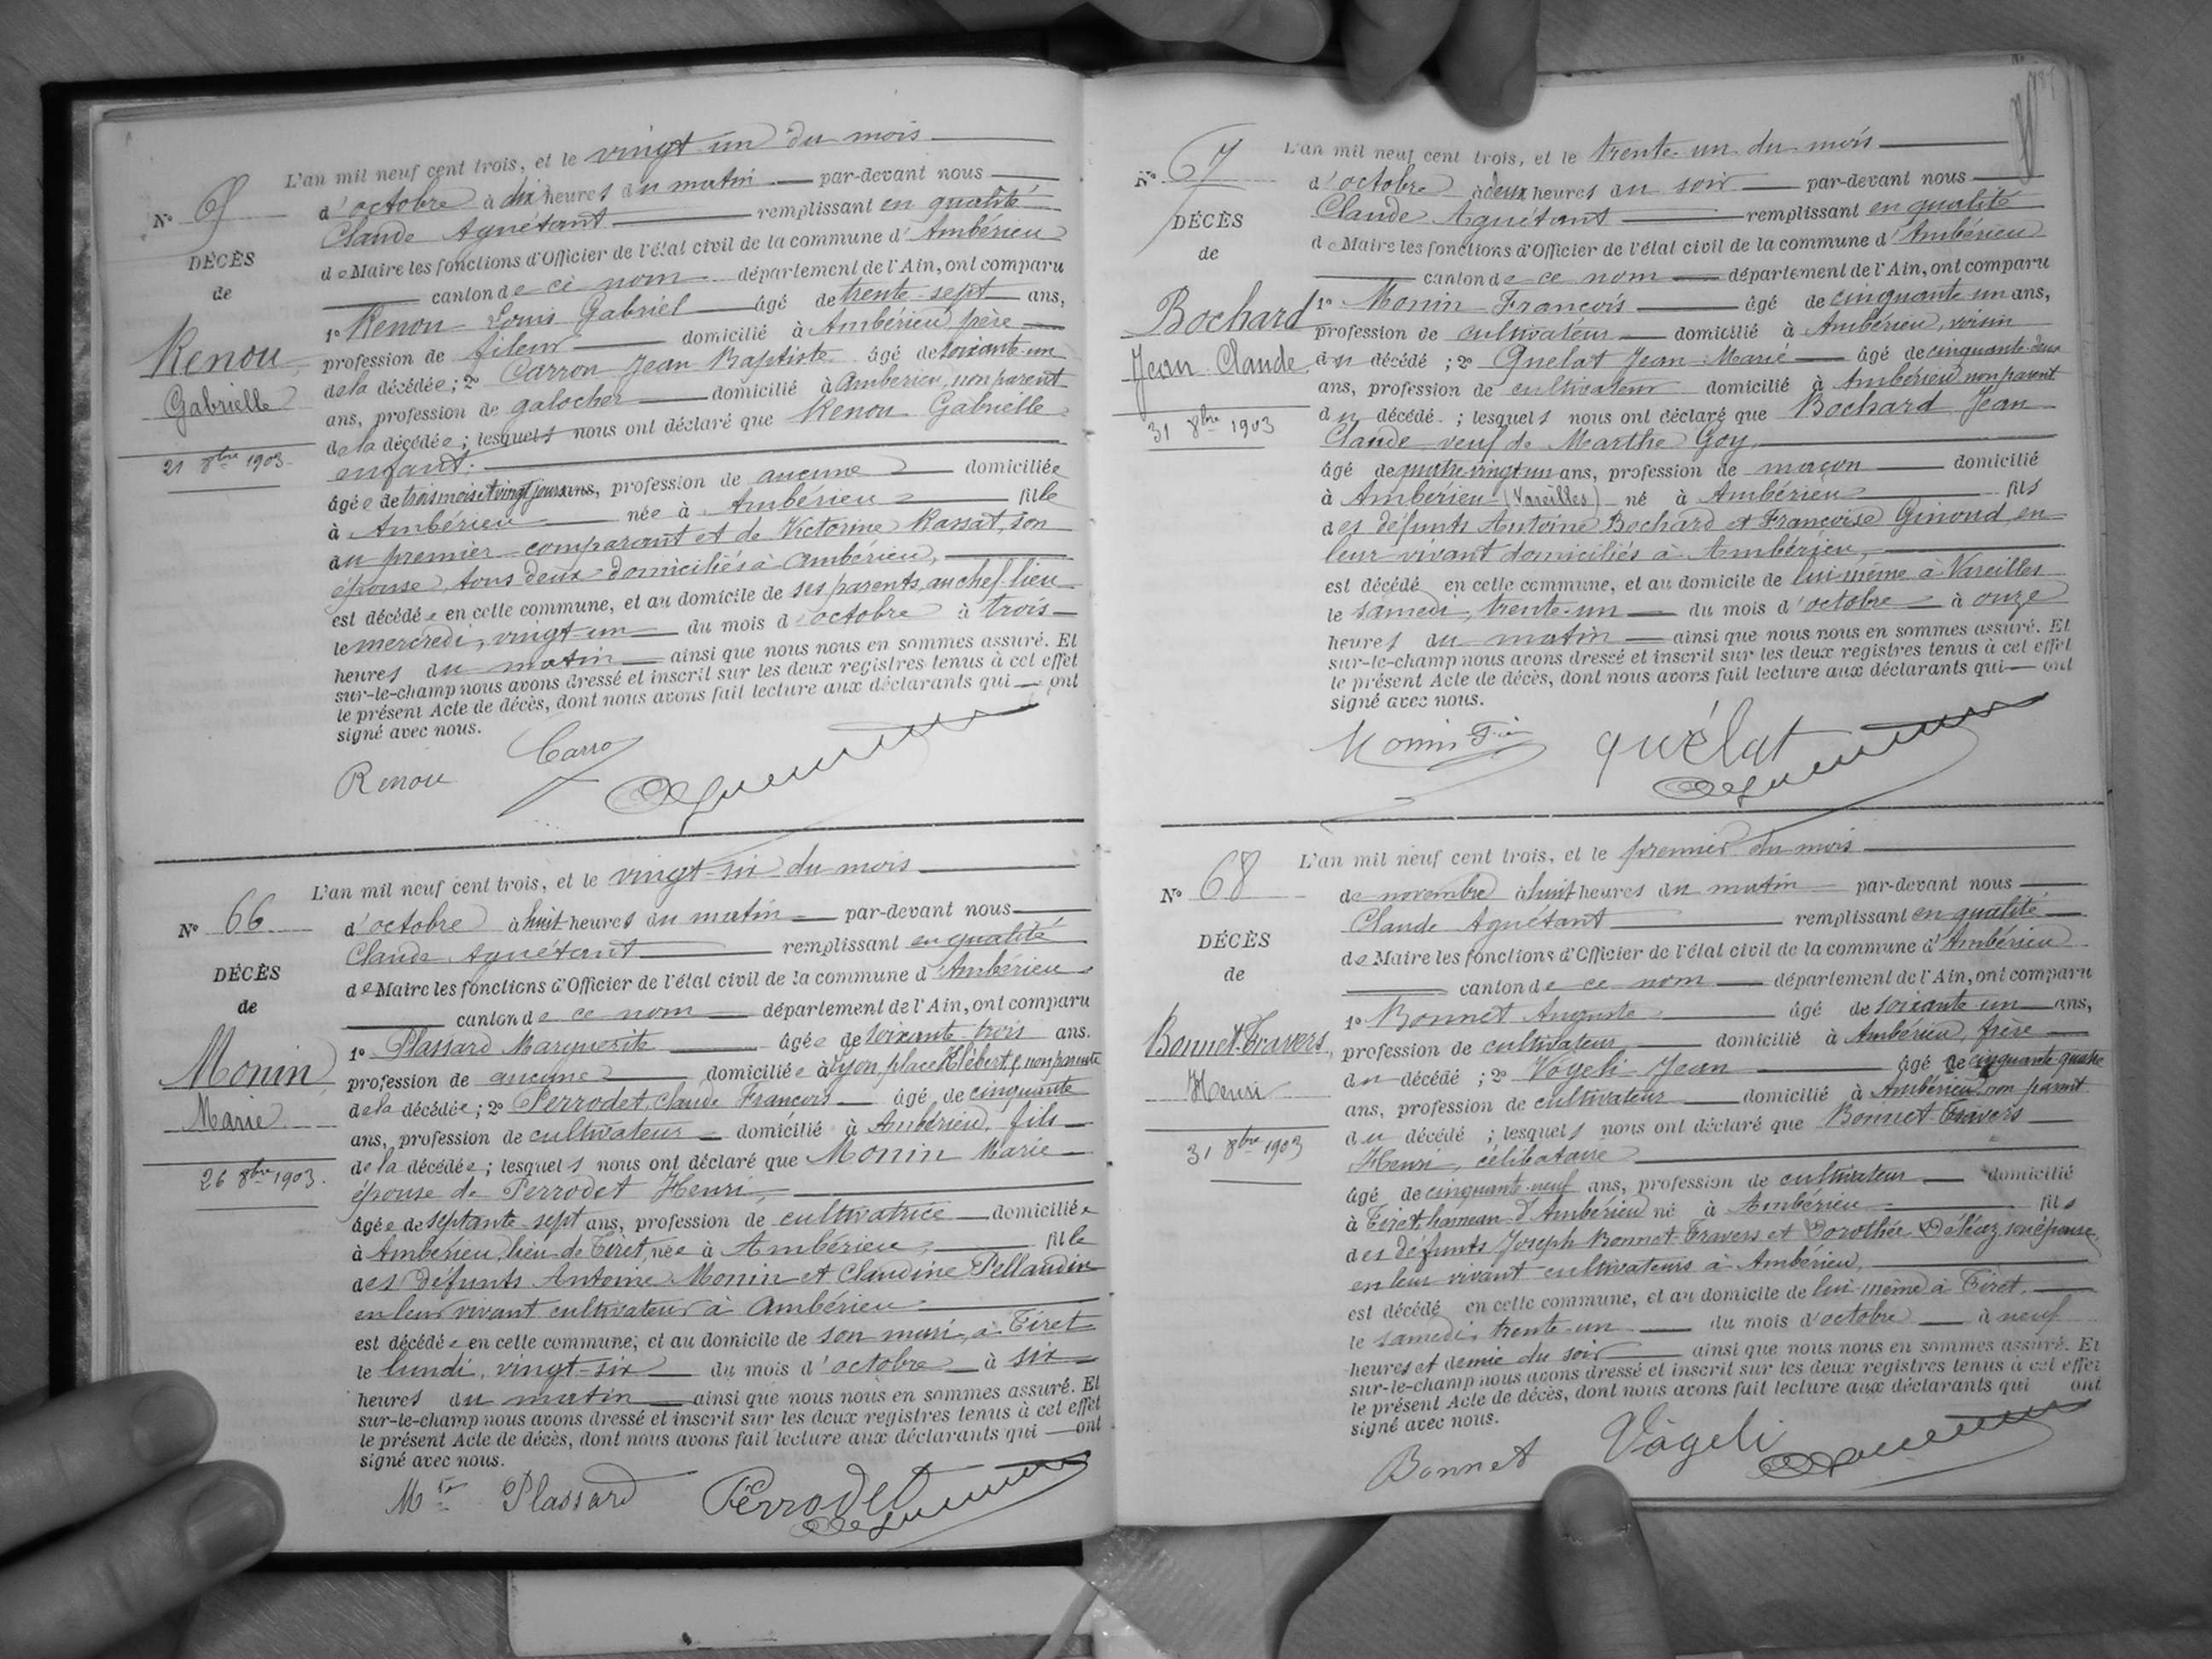 L'an mil neuf cent trois, et le vingt-un du mois
N° 65
d'octobre à dix heures du matin par-devant nous
Claude Aguétant remplissant en qualité
DÉCÈS
de Maire les fonctions d'Officier de l'état civil de la commune d'Ambérieu
de
canton de ce nom département de l'Ain, ont comparu
Renou
Gabrielle
21 8bre 1903
1° Renou Louis Gabriel âgé de trente-sept ans,
profession de fileur domicilié à Ambérieu, père
de la décédée ; 2° Carron Jean Baptiste âgé de soixante-un
ans, profession de galocher domicilié à Ambérieu, non parent
de la décédée ; lesquels nous ont déclaré que Renou Gabrielle
enfant.
âgée de trois mois et vingt jours ans, profession de aucune domiciliée
à Ambérieu née à Ambérieu fille
du premier comparant et de Victorine Rassat, son
épouse, tous deux domiciliés à Ambérieu,
est décédée en cette commune, et au domicile de ses parents, au chef-lieu
le mercredi, vingt-un du mois d'octobre à trois
heures du matin ainsi que nous nous en sommes assuré. Et
sur-le-champ nous avons dressé et inscrit sur les deux registres tenus à cet effet
le présent Acte de décès, dont nous avons fait lecture aux déclarants qui ont
signé avec nous.
Renou
L'an mil neuf cent trois, et le vingt-six du mois
N° 66
d'octobre à huit heures du matin par-devant nous
Claude Aguétant remplissant en qualité
DÉCÈS
de Maire les fonctions d'Officier de l'état civil de la commune d'Ambérieu
de
canton de ce nom département de l'Ain, ont comparu
Monin
Marie
26 8bre 1903.
1° Plassard Marguerite âgée de soixante-trois ans.
profession de aucune domiciliée à Lyon, place Klébert, non parente
de la décédée ; 2° Perrodet, Claude François âgé de cinquante
ans, profession de cultivateur domicilié à Ambérieu, fils
de la décédée ; lesquels nous ont déclaré que Monin Marie
épouse de Perrodet Henri,
âgée de septante-sept ans, profession de cultivatrice domiciliée
à Ambérieu, lieu de Tiret, née à Ambérieu, fille
des défunts Antoine Monin et Claudine Pellaudin
en leur vivant cultivateurs à Ambérieu
est décédée en cette commune, et au domicile de son mari, à Tiret
le lundi, vingt-six du mois d'octobre à six
heures du matin ainsi que nous nous en sommes assuré. Et
sur-le-champ nous avons dressé et inscrit sur les deux registres tenus à cet effet
le présent Acte de décès, dont nous avons fait lecture aux déclarants qui ont
signé avec nous.
Plassard Perrodet
L'an mil neuf cent trois, et le trente-un du mois
N° 67
d'octobre à deux heures du soir par-devant nous
Claude Aguétant remplissant en qualité
DÉCÈS
de Maire les fonctions d'Officier de l'état civil de la commune d'Ambérieu
de
canton de ce nom département de l'Ain, ont comparu
Bochard
Jean Claude
31 8bre 1903
1° Monin François âgé de cinquante-un ans,
profession de cultivateur domicilié à Ambérieu, voisin
du décédé ; 2° Quélat Jean Marie âgé de cinquante-deux
ans, profession de cultivateur domicilié à Ambérieu non parent
du décédé ; lesquels nous ont déclaré que Bochard Jean
Claude veuf de Marthe Goy,
âgé de quatre-vingt-un ans, profession de maçon domicilié
à Ambérieu (Vareilles) né à Ambérieu fils
des défunts Antoine Bochard et Françoise Ginoud, en
leur vivant domiciliés à Ambérieu,
est décédé en cette commune, et au domicile de lui-même à Vareilles
le samedi, trente-un du mois d'octobre à onze
heures du matin ainsi que nous nous en sommes assuré. Et
sur-le-champ nous avons dressé et inscrit sur les deux registres tenus à cet effet
le présent Acte de décès, dont nous avons fait lecture aux déclarants qui ont
signé avec nous.
Monin quélat
L'an mil neuf cent trois, et le premier du mois
N° 68
de novembre à huit heures du matin par-devant nous
Claude Aguétant remplissant en qualité
DÉCÈS
de Maire les fonctions d'Officier de l'état civil de la commune d'Ambérieu
de
canton de ce nom département de l'Ain, ont comparu
Bonnet-Travers,
Henri
31 8bre 1903
1° Bonnet Auguste âgé de soixante-un ans,
profession de cultivateur domicilié à Ambérieu, frère
du décédé ; 2° Vögeli Jean âgé de cinquante-quatre
ans, profession de cultivateur domicilié à Ambérieu, non parent
du décédé ; lesquels nous ont déclaré que Bonnet-Travers
Henri, célibataire
âgé de cinquante-neuf ans, profession de cultivateur domicilié
à Tiret, hameau d'Ambérieu né à Ambérieu fils
des défunts Joseph Bonnet-Travers et Dorothée son épouse,
en leur vivant cultivateurs à Ambérieu,
est décédé en cette commune, et au domicile de lui-même à Tiret,
le samedi, trente-un du mois d'octobre à neuf
heures et demie du soir ainsi que nous nous en sommes assuré. Et
sur-le-champ nous avons dressé et inscrit sur les deux registres tenus à cet effet
le présent Acte de décès, dont nous avons fait lecture aux déclarants qui ont
signé avec nous.
Bonnet Vögeli